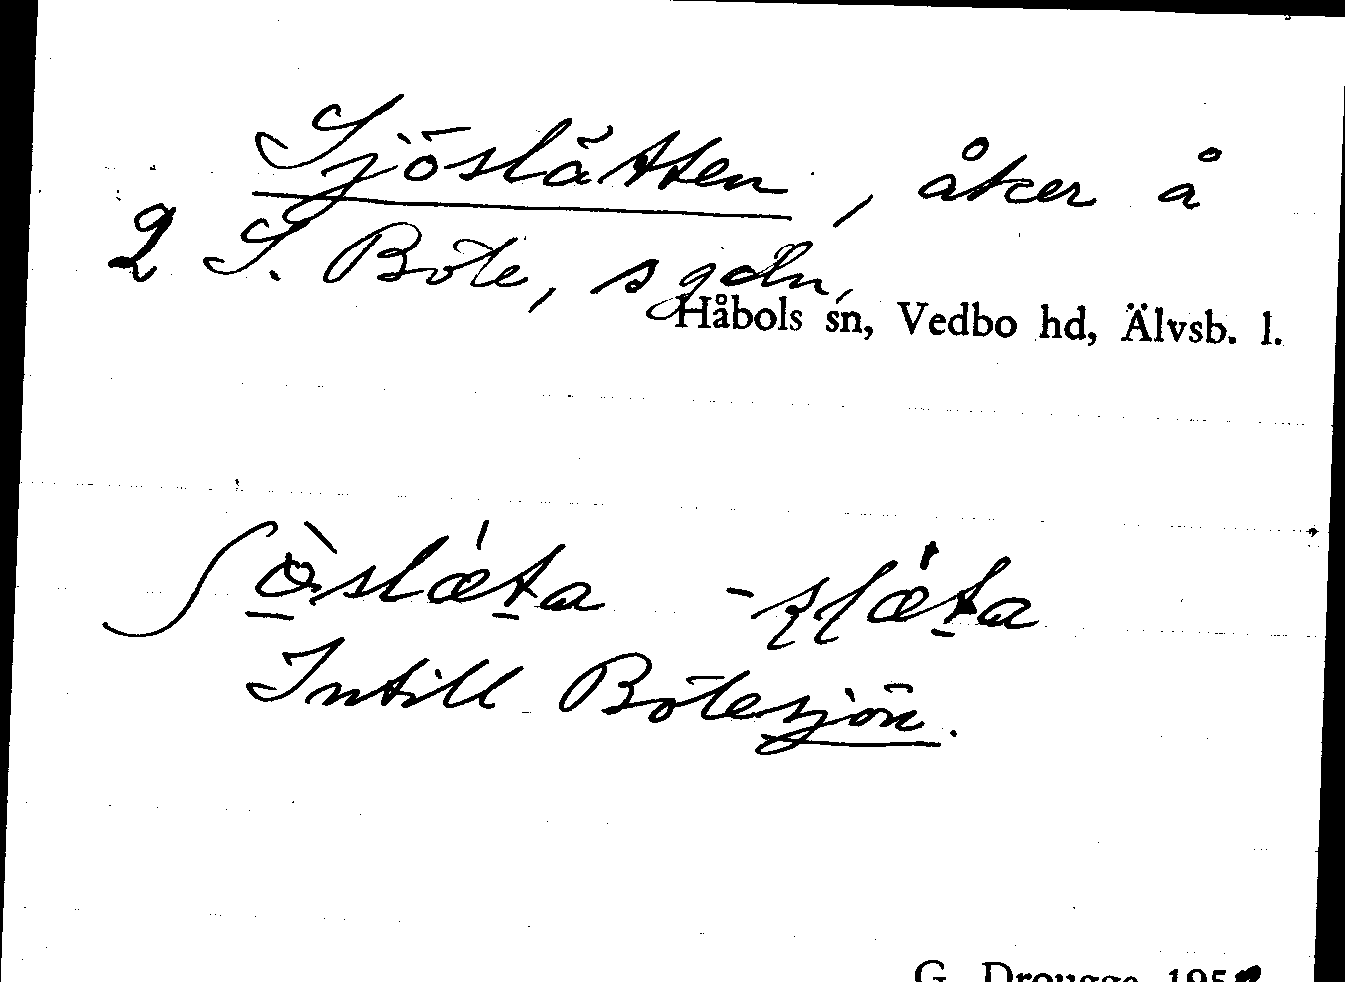 Sjöslätten, åker å
2 S. Böle, s gdn,
Håbols sn, Vedbo hd, Älvsb. l.
ʃòslǽta -ʂɭǽta
Intill Bölesjön.
G. Drougge 195